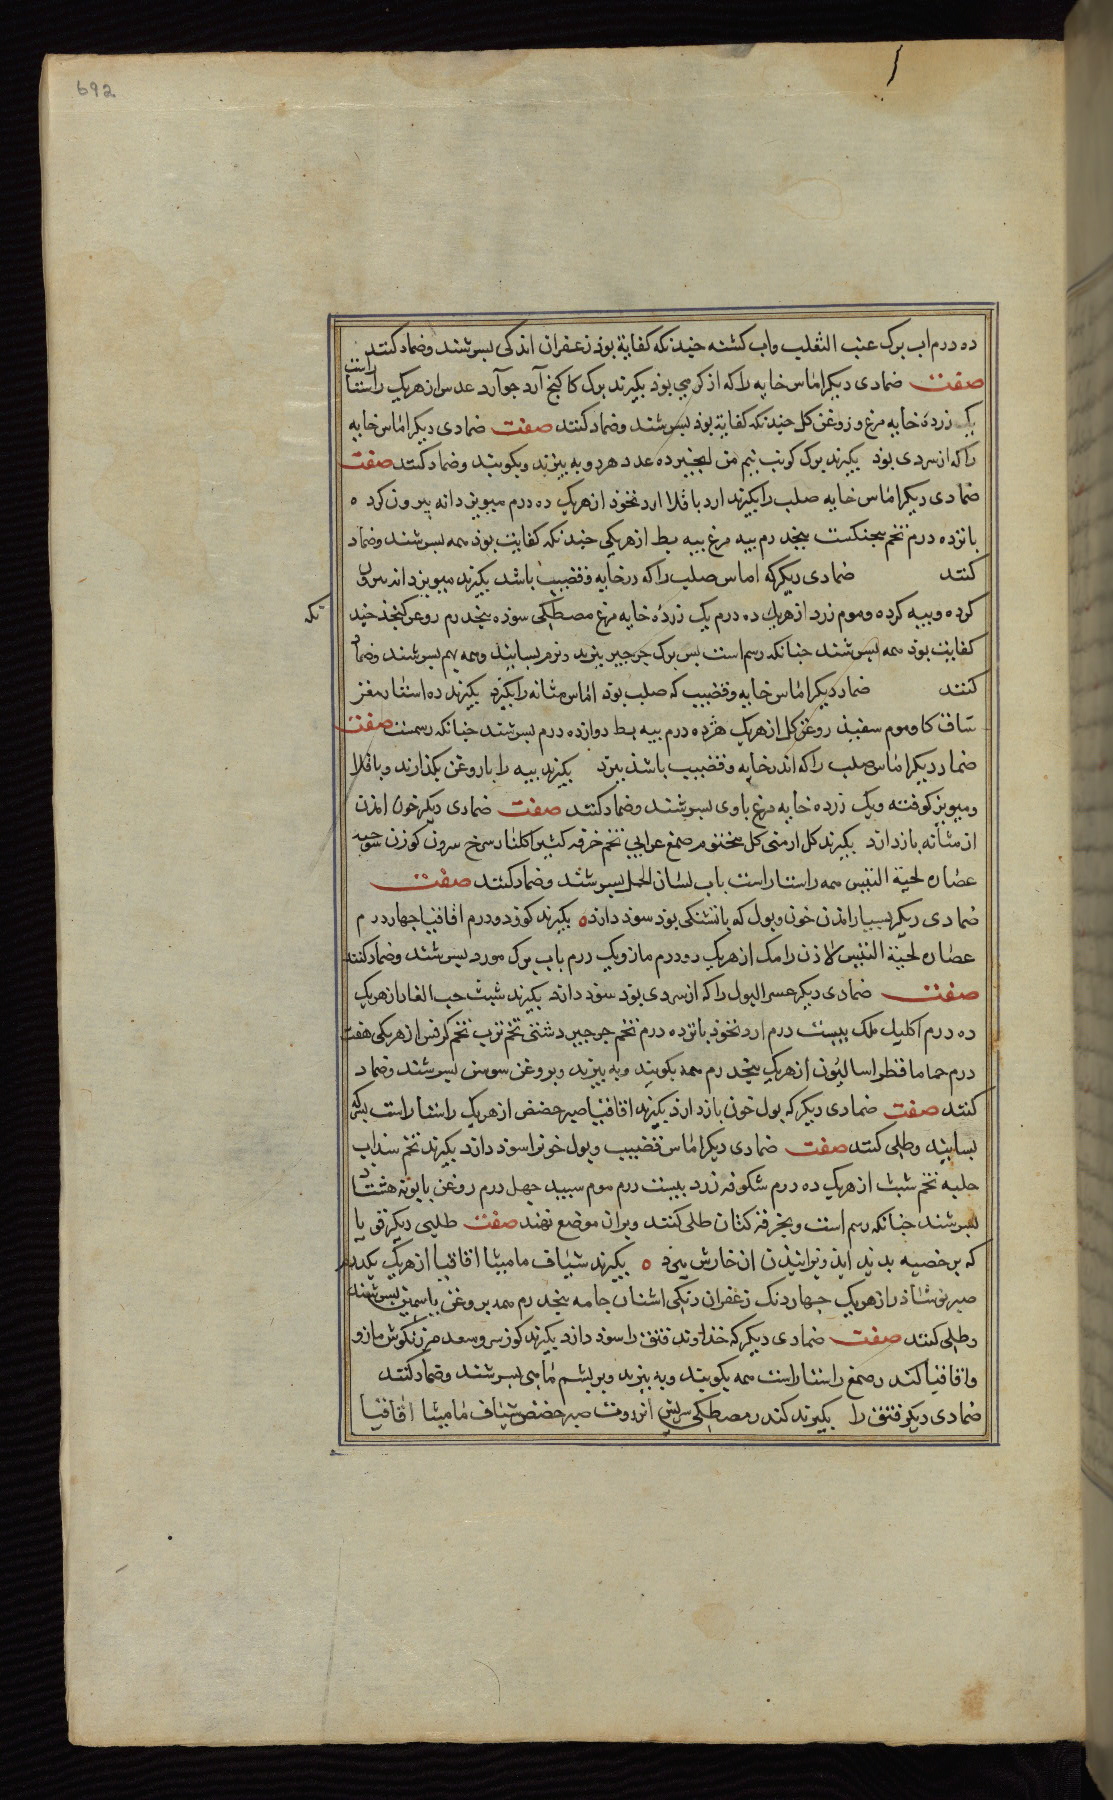 692
ده درم اب برک عنب الثعلب واب کشنه جندنکه کفایة بوذ زعفران اندکی بسرشند وضماد کنند
صفت ضمادی دیکر اماس خایه را که از کرمی بوذ بکیرند برک کاکنج آرد جو آرد عدس از هریک راستا راست
یک زرده خایه مرغ و روغن کل جندنکه کفایة بوذ بسرشند وضماد کنند صفت ضمادی دیکر اماس خایه
را که از سردی بوذ بکیرند برک کرنب نیم من انجیر ده عدد هردو به پزند وبکوبند وضماد کنند صفت
ضمادی دیکر اماس خایه صلب را بکیرند ارد باقلا ارد نخوذ از هریک ده درم میویز دانه بیرون کرده
بانزده درم تخم بنجنکشت بنجدرم بیه مرغ بیه بط از هریکی جندنکه کفایت بوذ همه بسرشند وضماد
کنند ضمادی دیکر که اماس صلب را که در خایه وقضیب باشد بکیرند میویز دانه بیرون
کرده وبیه کرده وموم زرد از هریک ده درم یک زرده خایه مرغ مصطکی سوده بنجدرم روغن کنجد جند
نکه
کفایت بوذ همه بسرشند جنانکه رسم است بس برک جرجیر بپزند ونرم بسایند وهمه بهم بسرشند وضماد
کنند ضماد دیکر اماس خایه وقضیب که صلب بوذ اماس مثانه را بکیرد بکیرند ده استار مغز
ساق کاو وموم سفیذ روغن کل از هریک هژده درم بیه بط دوازده درم بسرشند جنانکه رسمست صفت
ضماد دیکر اماس صلب را که اندر خایه وقضیب باشد ببرد بکیرند بیه را با روغن بکذارند وباقلا
ومیویز کوفته ویک زرده خایه مرغ باوی بسرشند وضماد کنند صفت ضمادی دیکر خون امذن
از مثانه باز دارد بکیرند کل ارمنی کل مختوم صمغ عرابی تخم خرفه کثیرا کلنار سرخ سرون کوزن سوخته
عصاره لحیة التیس همه راستا راست باب لسان الحمل بسرشند وضماد کنند صفت
ضمادی دیکر بسیار امذن خون وبول که باتشنکی بوذ سوذ دارد ه بکیرند کوز دو درم اقاقیا جهار درم
عصاره لحیة التیس لاذن رامک از هریک دو درم مازو یک درم باب برک مورد بسرشند وضماد کنند
صفت ضمادی دیکر عسر البول را که از سردی بوذ سوذ دارد بکیرند شبث حب الغار از هریک
ده درم اکلیل ملک بیست درم ارد نخوذ بانزده درم تخم جرجیر دشتی تخم ترب تخم کرفس از هریکی هفت
درم حماما فطراسالیون از هریک بنجدرم همه بکوبند وبه بیزند وبروغن سوسن بسرشند وضماد
کنند صفت ضمادی دیکر که بول خون باز دارد بکیرند اقاقیا صبر حضض از هریک راستا راست بسرکه
بسایند وطلی کنند صفت ضمادی دیکر اماس قضیب وبول خونرا سوذ دارد بکیرند تخم سذاب
حلبه تخم شبث از هریک ده درم شکوفه زرد بیست درم موم سبید جهل درم روغن بابونه هشتاد
بسرشند جنانکه رسم است وبخرقه کتان طلی کنند وبران موضع نهند صفت طلیی دیکر قوبا
که بر خصیه بدید ایذ وبرانیذن ان خارش بنهد ه بکیرند شیاف مامیثا اقاقیا از هریک یکدرم
صبر نوشاذر از هریک جهار دنک زعفران دنکی اشنان جامه بنجدرم همه بروغن یاسمین بسرشند
وطلی کنند صفت ضمادی دیکر که خذاوند فتق را سوذ دارد بکیرند کوز سرو وسعد مرزنکوش مازو
واقاقیا کندر صمغ راستا راست همه بکوبند وبه بیزند وبریشم ماهی بسرشند وضماد کنند
ضمادی دیکر فتق را بکیرند کندر مصطکی سریش انزروت صبر حضض شیاف مامیثا اقاقیا